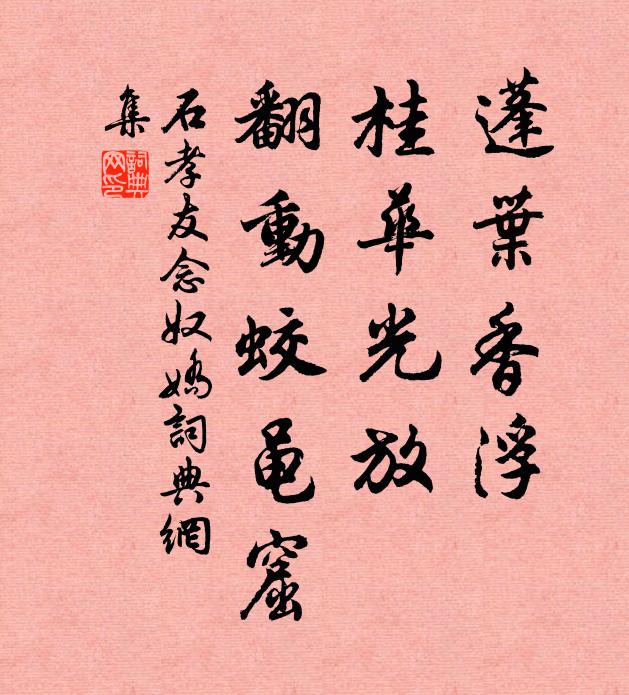 蓬葉香浮
桂華光放
翻動蛟黾窟
石孝友念奴嬌詞典網
集
詞典
网印